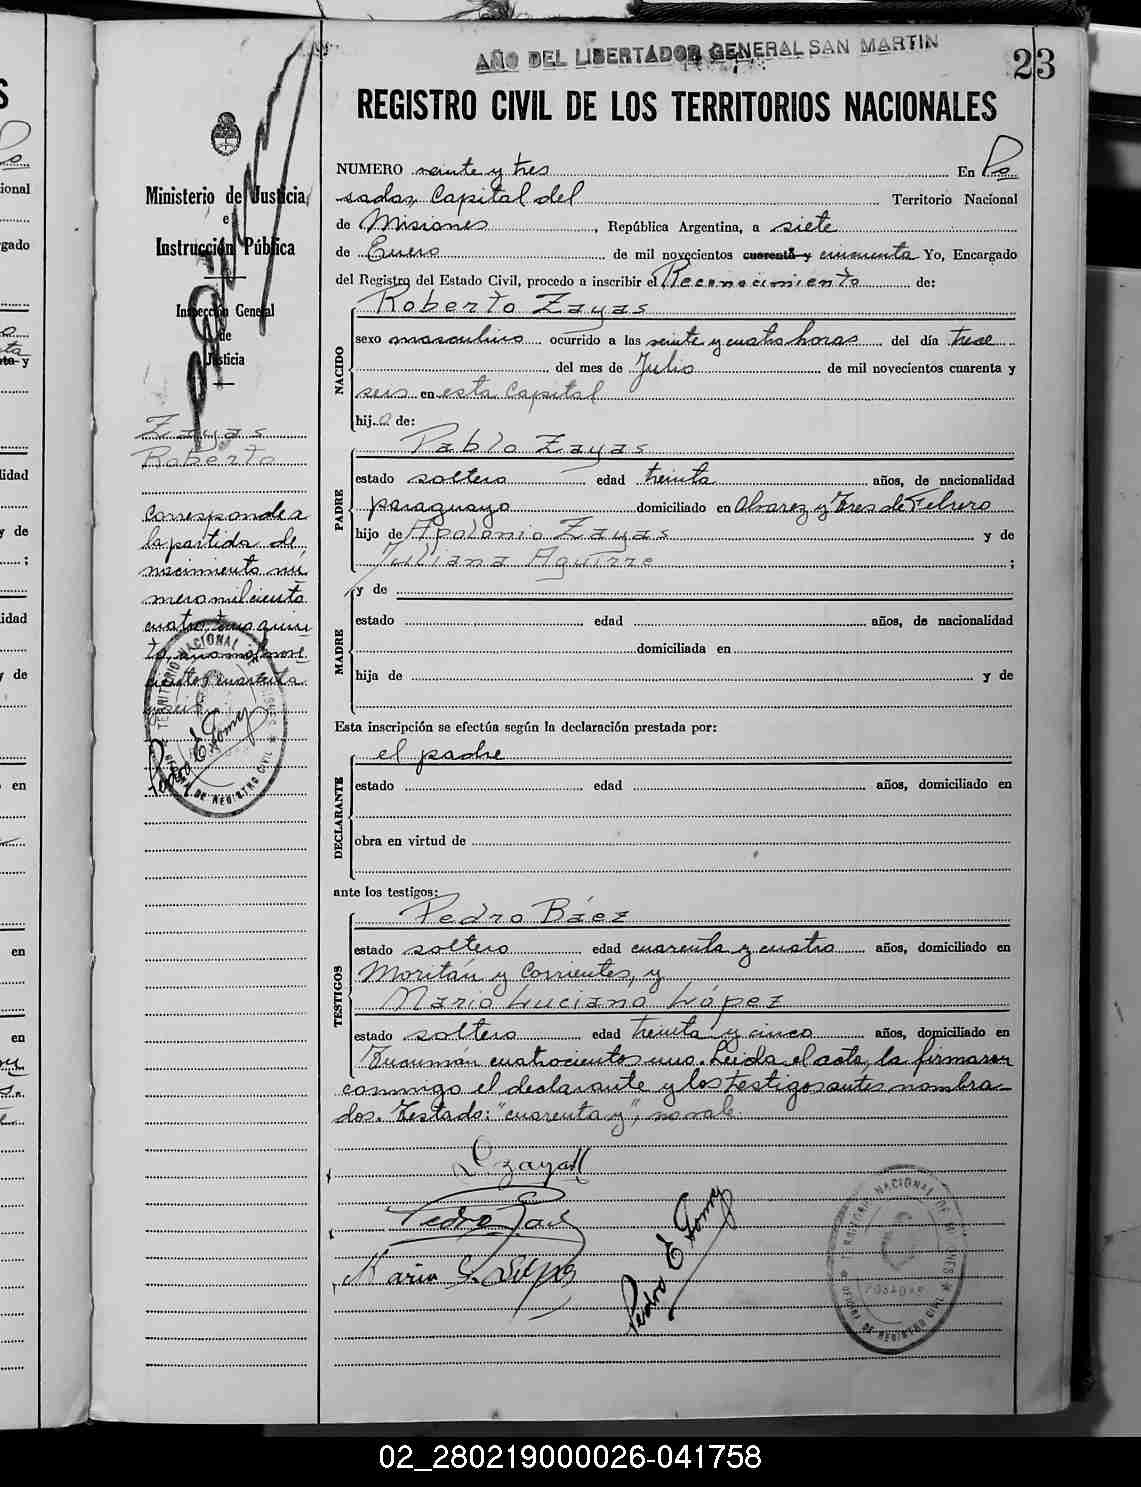 AÑO DEL LIBERTADOR GENERAL SAN MARTIN
23
REGISTRO CIVIL DE LOS TERRITORIOS NACIONALES
Ministerio de Justicia
e
Instrucción Pública
Inspección General
de
Justicia
Zayas
Roberto
corresponde a
la partida de
nacimiento nú
mero mil ciento
cuatro tomo quin
to, año mil nove
cientos cuarenta
y seis.
TERRITORIO NACIONAL DE MISIONES
OFICINA DE REGISTRO CIVIL
Pedro E Gomez
NUMERO veinte y tres En Po
sadas, Capital del Territorio Nacional
de Misiones, República Argentina, a siete
de Enero de mil novecientos cuarenta y cincuenta Yo, Encargado
del Registro del Estado Civil, procedo a inscribir el Reconocimiento de:
Roberto Zayas
NACIDO
sexo masculino ocurrido a las veinte y cuatro horas del día trece
del mes de Julio de mil novecientos cuarenta y
seis en esta Capital
hijo de:
Pablo Zayas
PADRE
estado soltero edad treinta años, de nacionalidad
paraguayo domiciliado en Alvarez y Tres de Febrero
hijo de Apolonio Zayas y de
Juliana Aguirre ;
y de
MADRE
estado edad años, de nacionalidad
domiciliada en
hija de y de
Esta inscripción se efectúa según la declaración prestada por:
el padre
DECLARANTE
estado edad años, domiciliado en
obra en virtud de
ante los testigos:
Pedro Báez
TESTIGOS
estado soltero edad cuarenta y cuatro años, domiciliado en
Moritán y Corrientes, y
Mario Luciano López
estado soltero edad treinta y cinco años, domiciliado en
Tucumán cuatrocientos uno. Leida el acta, la firmaron
conmigo el declarante y los testigos antes nombra
dos. Testado: "cuarenta y", no vale.
Pedro E Gomez
TERRITORIO NACIONAL DE MISIONES
POSADAS
OFICINA DE REGISTRO CIVIL
02_280219000026-041758